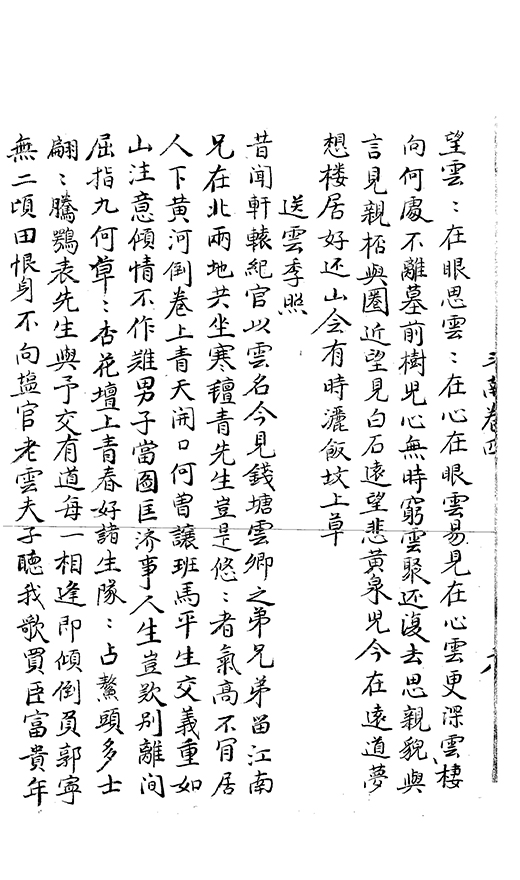 望雲：在眼思雲：在心在眼雲易見在心雲更深雲棲
向何處不離墓前樹児心無時窮雲聚还復去思親貌與
言見親栝與圏近望見白石遠望悲黄泉児今在遠道夢
想楼居好还山会有時灑飯坟上草
送雲季照
昔聞軒轅紀官以雲名今見錢塘雲卿之弟兄弟畄江南
兄在北兩地共坐寒氊青先生豈是悠：者氣高不肎居
人下黄河倒卷上青天開口何曽讓班馬平生交義重如
山注意傾情不作難男子當圖匡济事人生豈歎别離间
屈指九何草：杏花壇上青春好諸生隊：占鰲頭多士
翩：騰鶚表先生與予交有道每一相逢即傾倒負郭寧
無二頃田恨身不向塩官老雲夫子聽我歌買臣富貴年